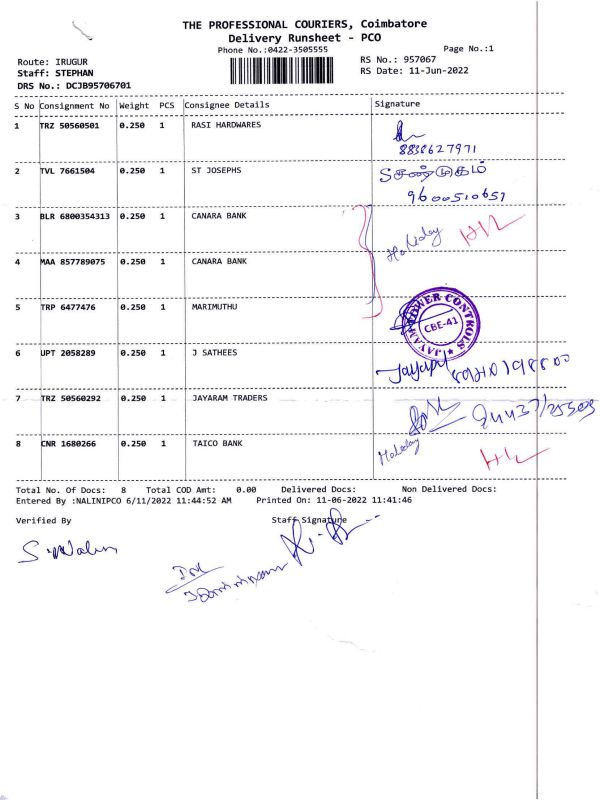 THE PROFESSIONAL COURIERS, Coimbatore
Delivery Runsheet - PCO
Phone No.:0422-3505555 Page No.:1
Route: IRUGUR RS No.: 957067
Staff: STEPHAN RS Date: 11-Jun-2022
DRS No.: DCJB95706701
S No Consignment No Weight PCS Consignee Details Signature
1 TRZ 50560501 0.250 1 RASI HARDWARES
8838627971
2 TVL 7661504 0.250 1 ST JOSEPHS சண்முகம்
9600510657
3 BLR 6800354313 0.250 1 CANARA BANK
Holiday
4 MAA 857789075 0.250 1 CANARA BANK
5 TRP 6477476 0.250 1 MARIMUTHU
JAYAM POWER CONTROLS
CBE-41
6 UPT 2058289 0.250 1 J SATHEES
7 TRZ 50560292 0.250 1 JAYARAM TRADERS
8 CNR 1680266 0.250 1 TAICO BANK
Holiday
Total No. Of Docs: 8 Total COD Amt: 0.00 Delivered Docs: Non Delivered Docs:
Entered By :NALINIPCO 6/11/2022 11:44:52 AM Printed On: 11-06-2022 11:41:46
Verified By Staff Signature